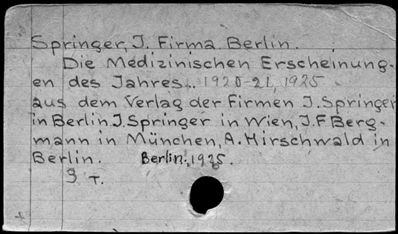 Springer, J. Firma. Berlin.
Die Medizinischen Erscheinung-
en des Jahres.. 1920-21, 1925
aus dem Verlag der Firmen J. Springer
in Berlin J. Springer in Wien, J. F Berg-
mann in München, A. Hirschwald in
Berlin. Berlin:, 1925.
T.